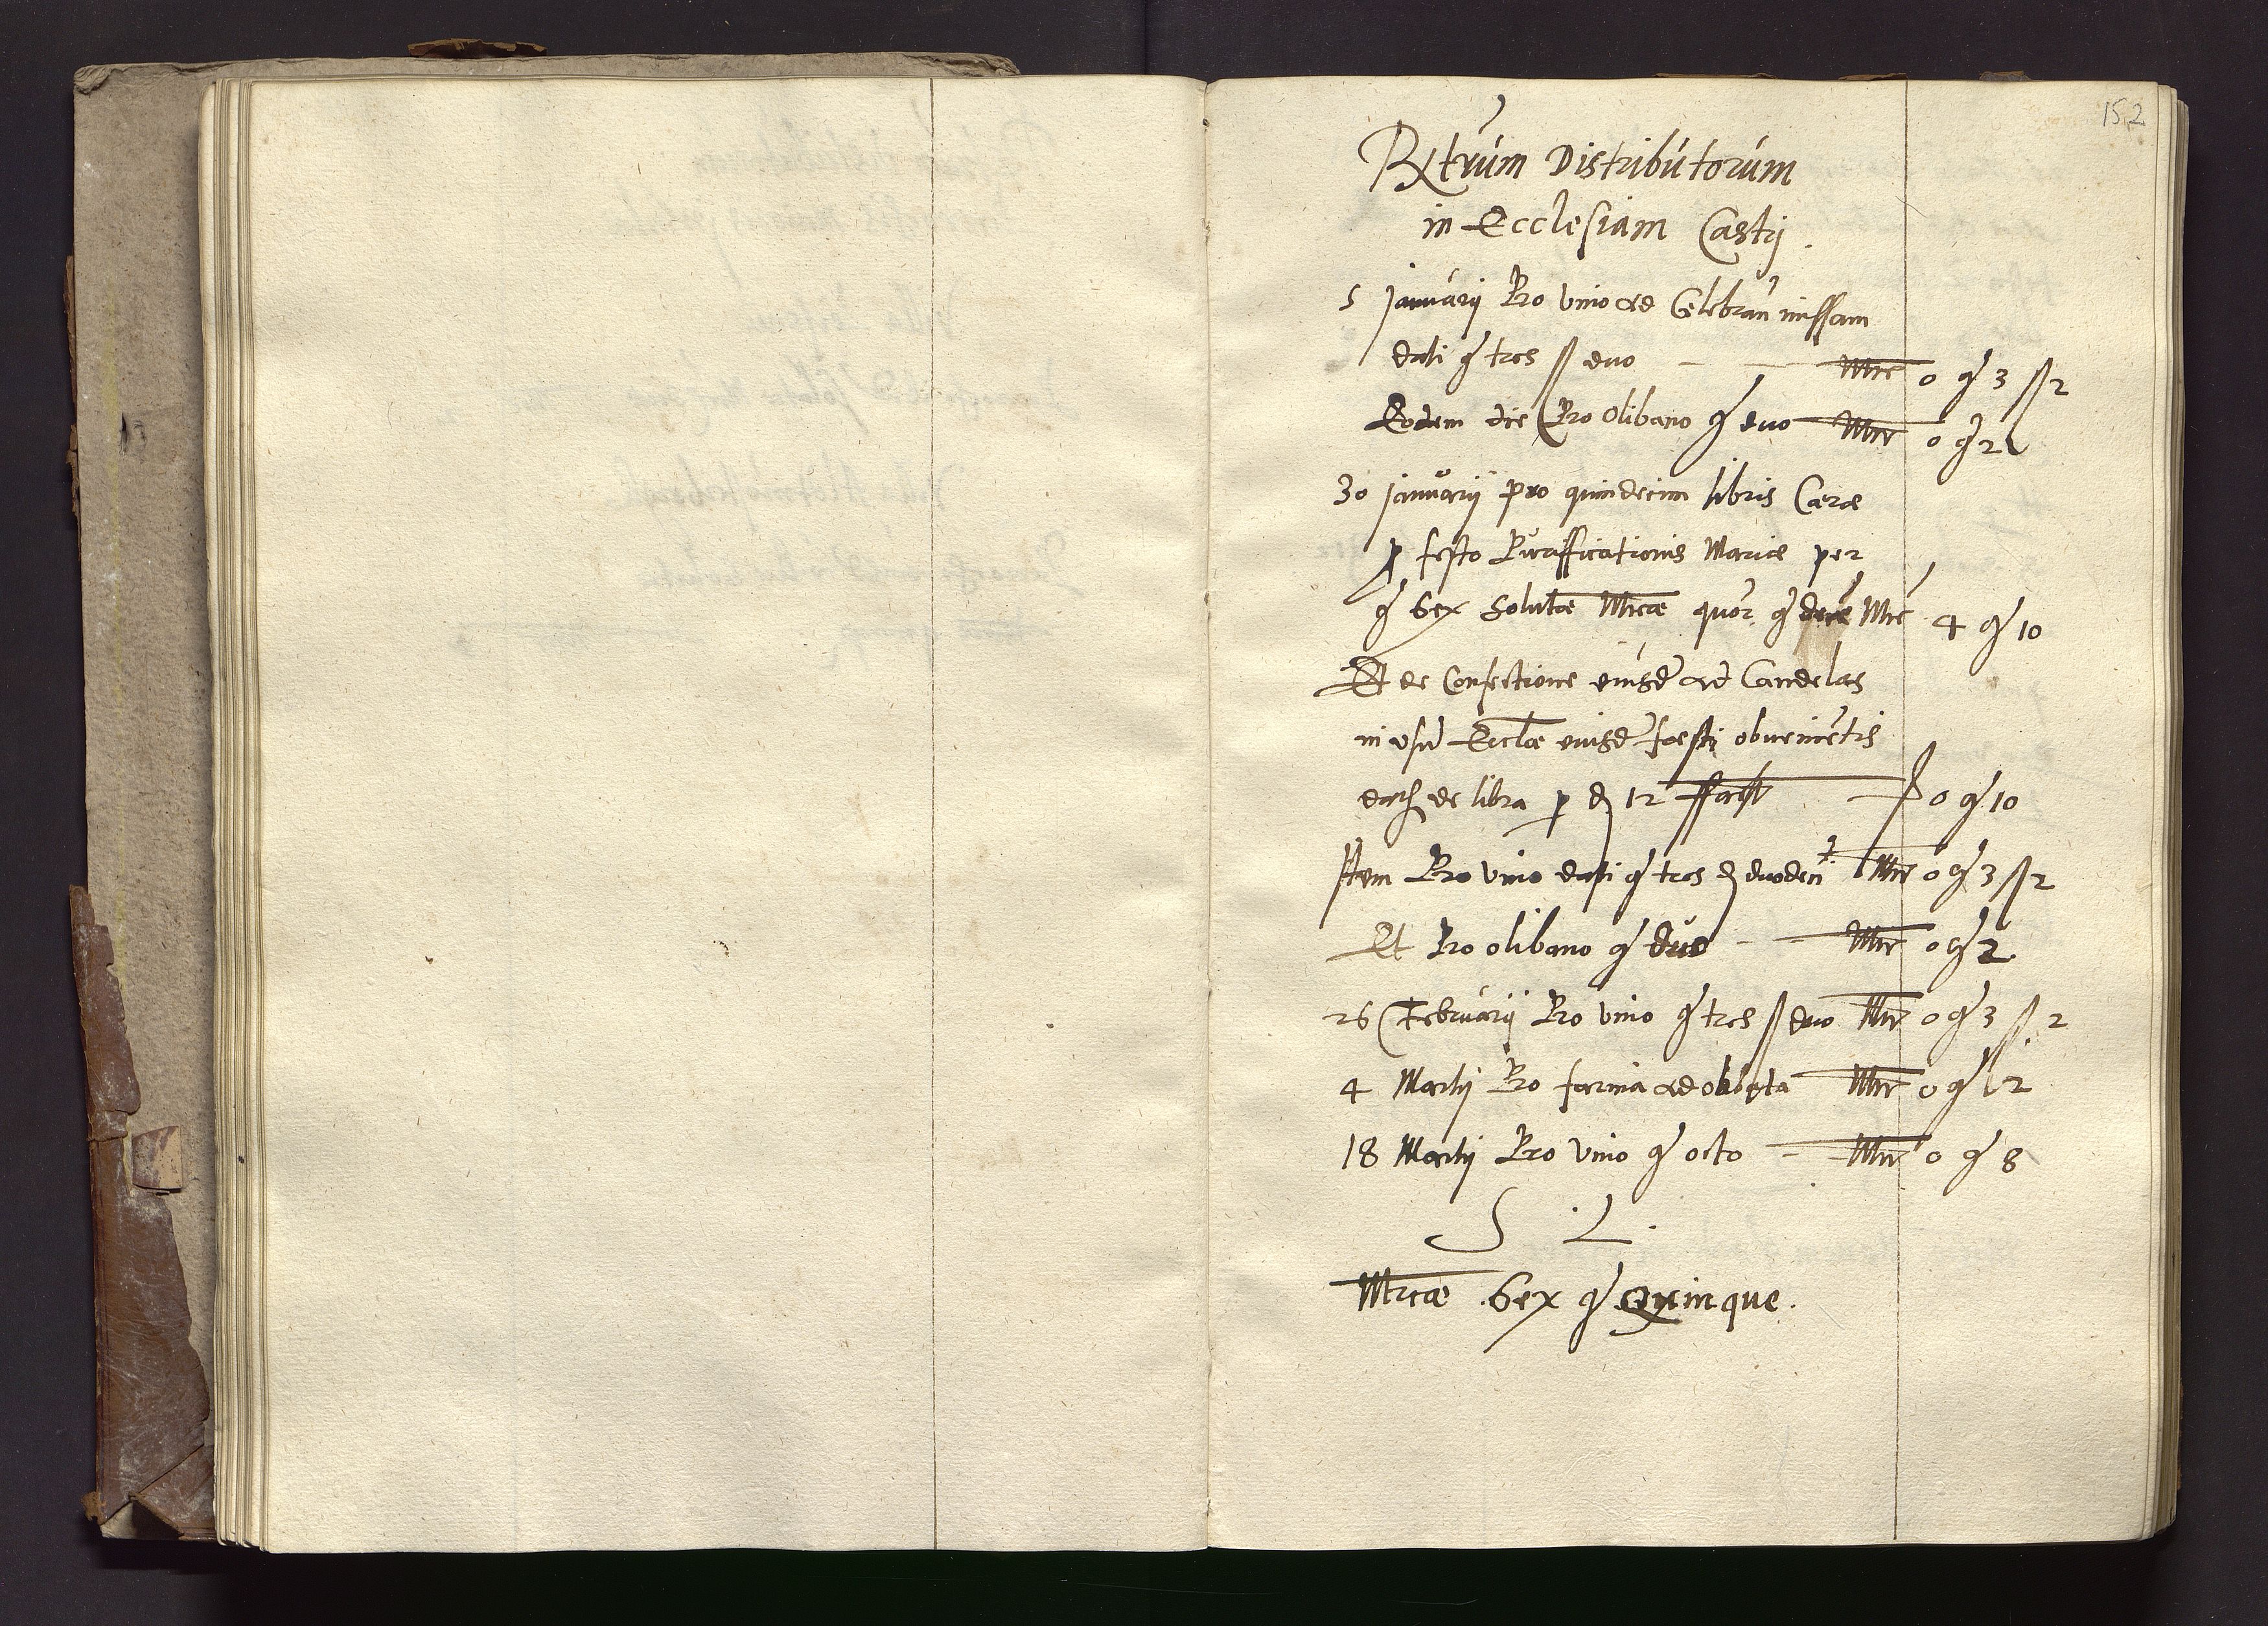 152
Rxtrum Distributorum
in Ecclesiam Castri.
5 Januarij Pro vino ad Celebran missam
dati g tres ss duo — — Mrc 0 g 3 ss 2
Eodem die Pro Olibano g duo Mrc 0 g 2
30 Januarij pro quindecim libris Cerae
p festo Puriffications Mariae per
g sex Solutae Mrcae quor g dece Mrc 4 g 10
Et de Confectione eiusd ad Candelas
in usu Ecclae eiusd faesti obvenientis
de libra p d 12 facit 0 g 10
Item Pro vino dati g tres d duoden Mrc 0 g 3 ss 2
Et Pro olibano g duo — — Mrc 0 g 2
26 Februarij Pro vino g tres ss duo Mrc 0 g 3 ss 2
4 Martij Pro farina ad oblata Mrc 0 g 2
18 Martij Pro vino g octo — Mrc 0 g 8
S L
Mrcae sex g Quinque.